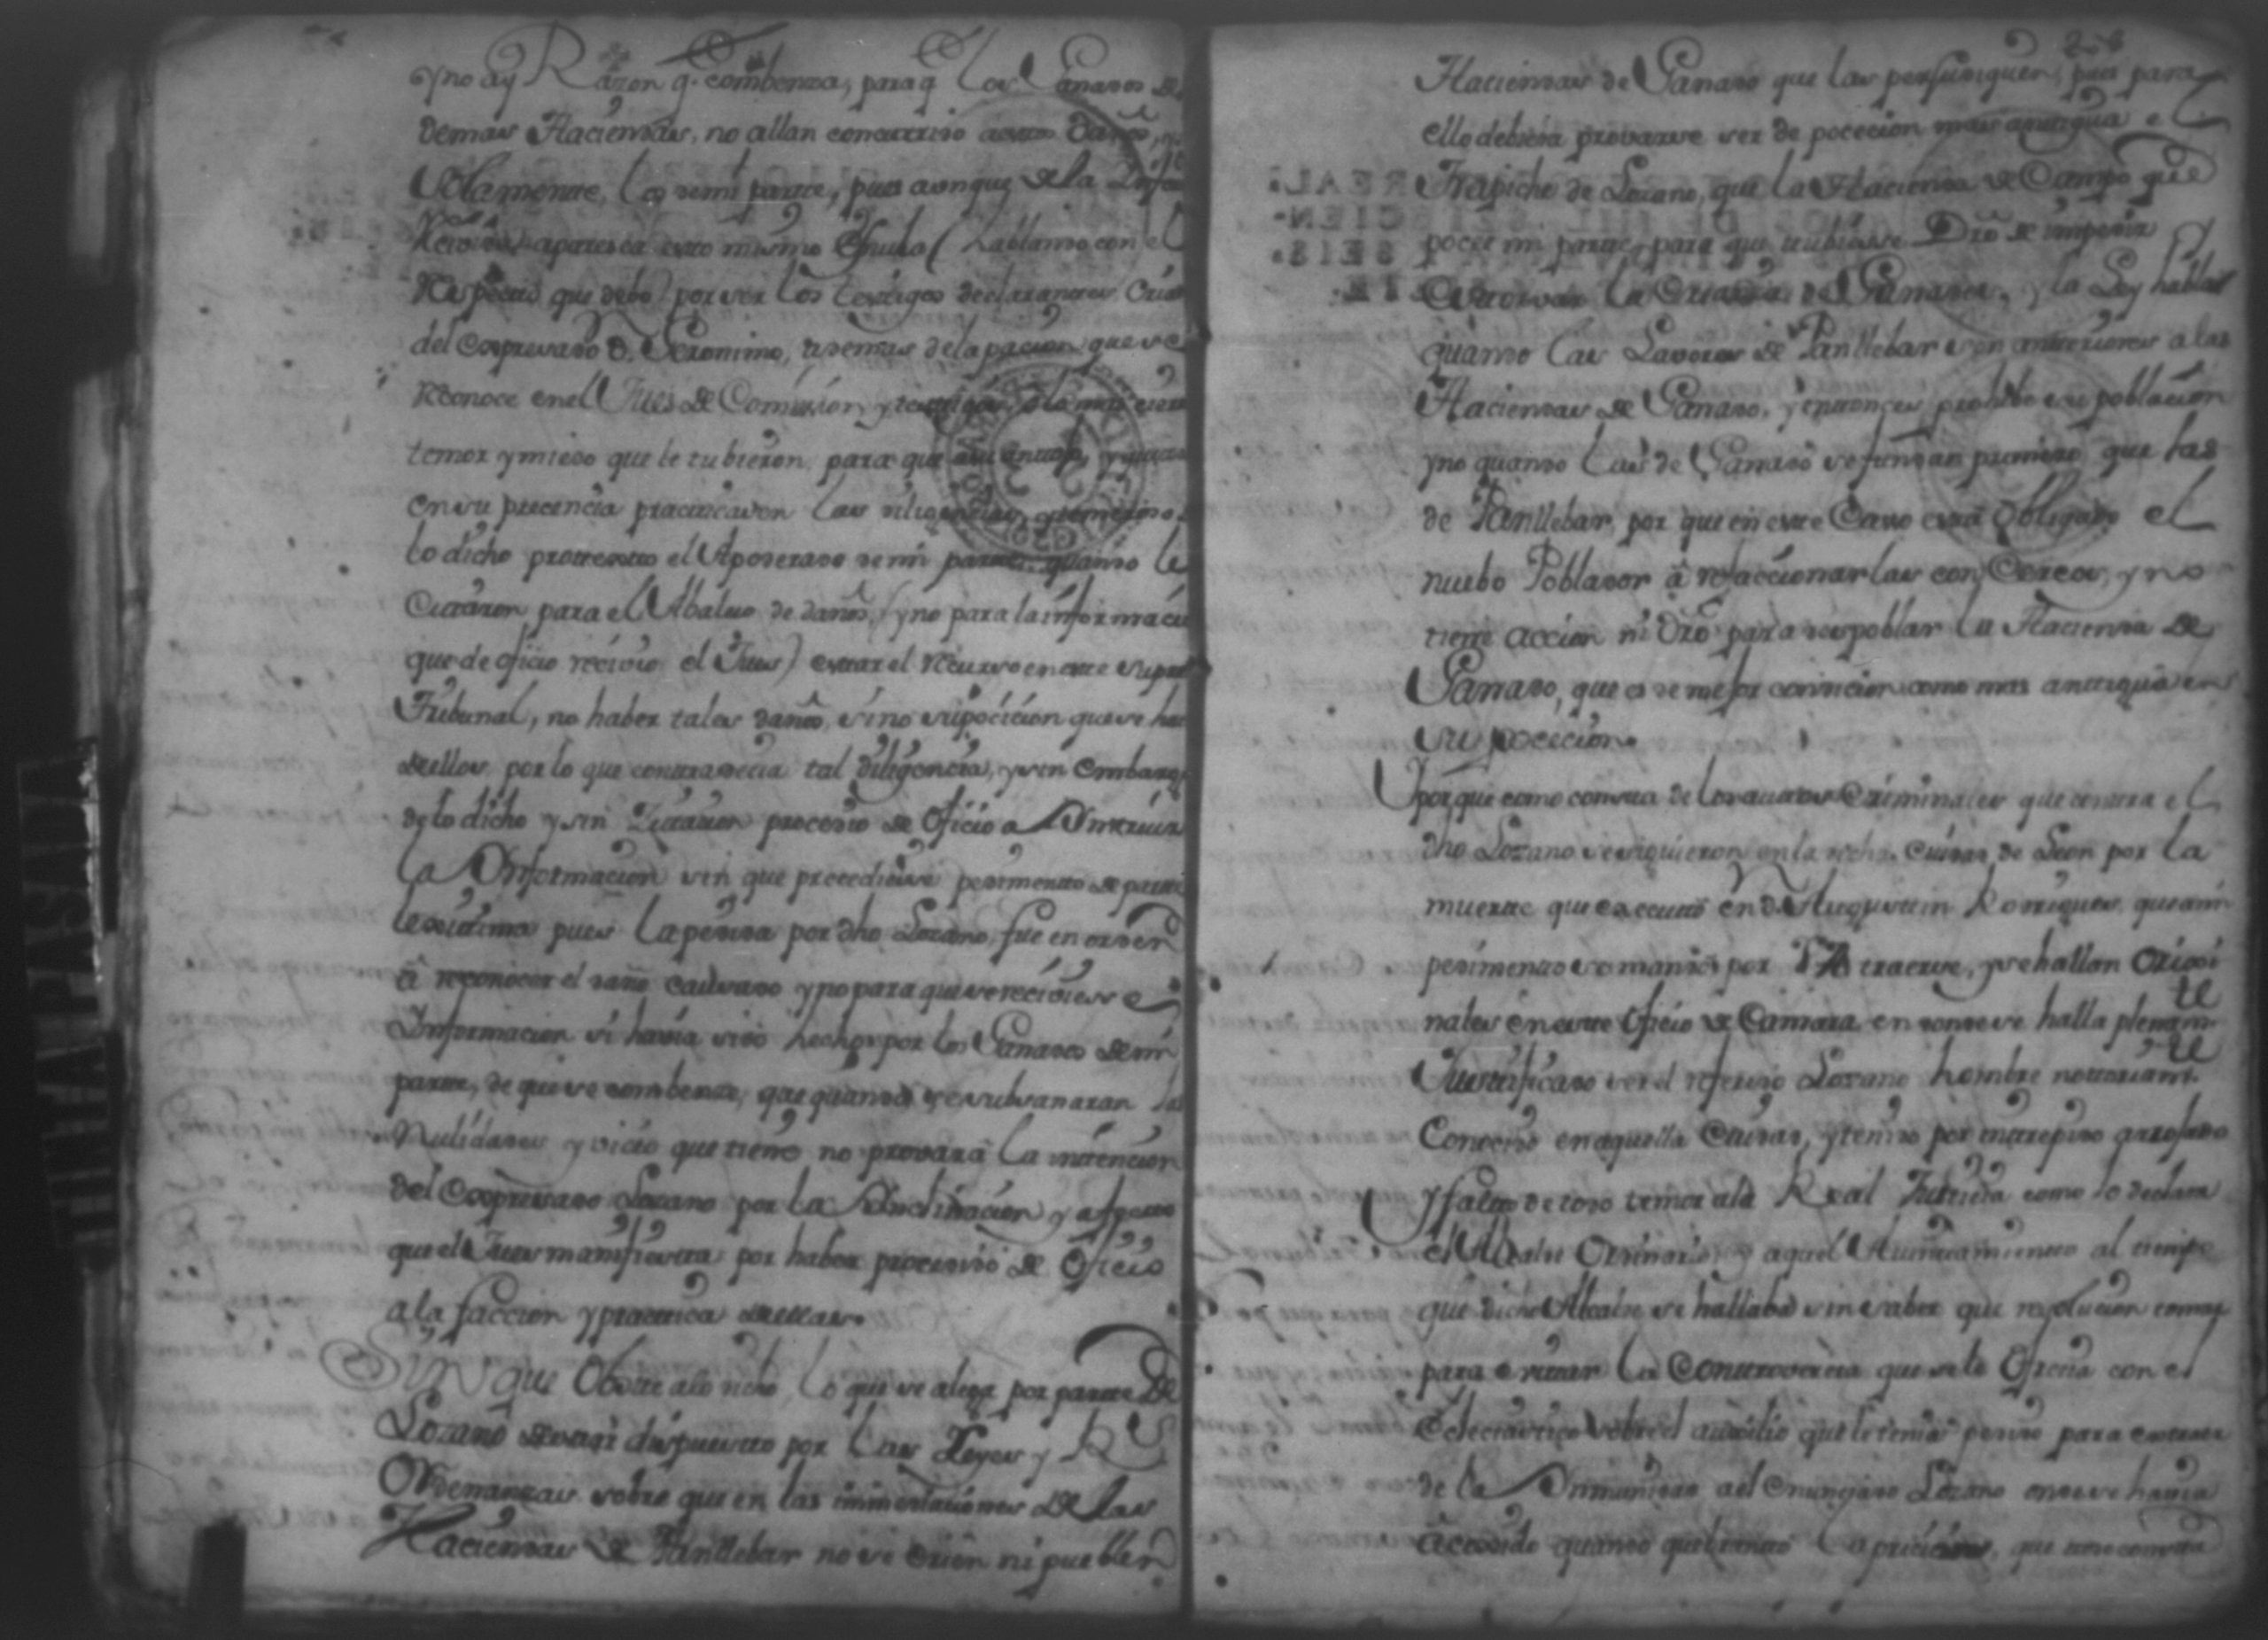 y no ay Razon q. combenza, para q los Ganados de
demas Haciendas, no allan concurrido a daños,
solamente, los de mi parte, pues aunque de la
aparesca esto mismo (hablando con el
Respecto que debo) por ser los testigos declarantes
del expresado D. Geronimo, ademas de la pacion que se
Reconoce en el Jues de Comision, y testigos
temor y miedo que le tubieron, para que
en su precencia practicaron las diligencias,
lo dicho protexto el Apoderado de mi parte, quando le
Citaron para el Abaluo de daños, (y no para la informacion
que de oficio recivio el Jues) estar el recurso en este
Tribunal, no haber tales daños, sino supocicion que se hace
de ellos, por lo que contradecia tal diligencia, y sin embargo
de lo dicho y sin Zitacion procedio de oficio a Instruir
la Informacion sin que precediese pedimento de parte
lexitima pues la pedida por dho Lozano, fue en orden
â reconocer el daño causado y no para que se reciviese
Informacion si havia sido hechos por los Ganados de mi
parte, de que se combence, que quando se subsanaran las
Nulidades y vicio que tiene no provara la intencion
del Expresado Lozano por la Inclinacion y afecto
que el Jues manifiesta por haber procedido de Oficio
a la faccion y practica de ellas.
Sin que Obste a lo dicho, lo que se alega por parte de
Lozano de estar dispuesto por las Leyes y Rs
Ordenanzas sobre que en las inmediaciones de las
Haciendas de Panllebar no se crien ni pueblen
Haciendas de Ganado que las perjudiquen, pues para
ello debiera provarse ser de pocecion mas antigua el
Trapiche de Lozano, que la Hacienda de Campo que
pocee mi parte, para que tubiese Dro de impedir
la Crianza de Ganados, y la Ley habla
quando las Lavores de Panllebar son anteriores a las
Haciendas de Ganado, y entonces prohibe su poblacion
y no quando las de Ganado se fundan primero que las
de Panllebar, por que en este Caso está obligado el
nuebo Poblador â refaccionarlas con Cercos, y no
tiene accion ni dro para despoblar la Hacienda de
Ganado, que es de mejor condicion como mas antigua en
su pocecion.
Y porque como consta de los autos Criminales que contra el
dho Lozano se siguieron en la dicha Ciudad de Leon por la
muerte que executó en Dn Augustin Rodrigues, que a mi
pedimento se mandó por V.A. traerse, y se hallan Origi
nales en este Oficio de Camara en donde se halla plenamte
Justificado ser el referido Lozano hombre notoriamte
Conocido en aquella Ciudad, y tenido por intrepido arrojado
y falto de todo temor a la Real Justicia como lo declara
el Alcalde Ordinario, y aquel Aiuntamiento al tiempo
que dicho Alcalde se hallaba sin saber que resolucion tomar
para evitar la Controvercia que se le Ofrecia con el
Eclesiastico sobre el auxilio que le tenia pedido para extraer
de la Inmunidad al enunciado Lozano donde se havia
acojido quando quebrantó la pricion, que